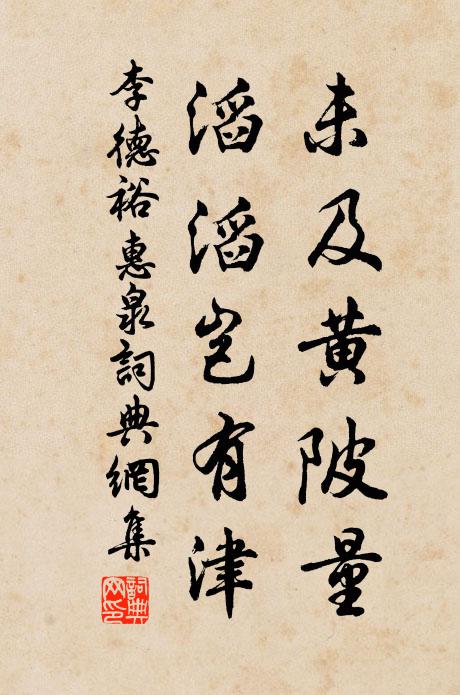 未及黄陂量
滔滔岂有津
李德裕惠泉詞典網集
詞典網印